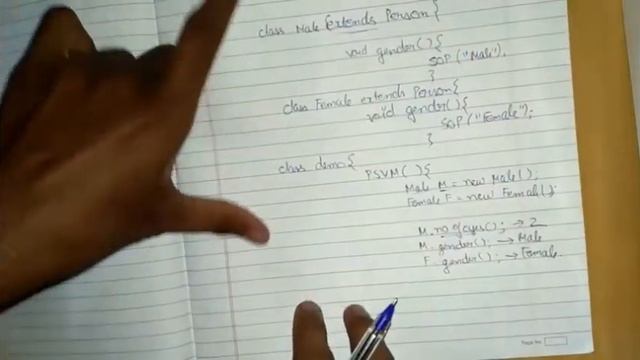 class Male Extends Person{
void gender(){
SOP("Male");
}
class Female extends Person{
void gender(){
SOP("Female");
}
class demo{
PSVM( ){
Male M = new Male();
Female F = new Female();
M.no of eyes(); → 2
M.gender(); → Male
F.gender(); → Female
Page No.